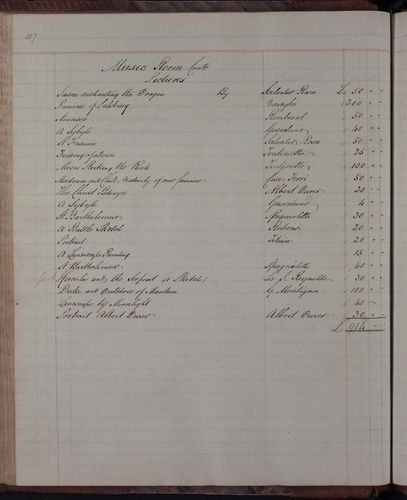 107
Music Room Contd
Pictures
Jason enchanting the Dragon By Salvator Rosa £ 50 " "
of Salsburg 200 " "
50 " "
A Sybyle Guercino 40 " "
St Francis Salvator Rosa 50 " "
Tintoretto 25 " "
Moses Striking the Rock Tintoretto 100 " "
Madonna and Child, Nativity of our Saviour 50 " "
The Christ Albert Durer 20 " "
A Sybyle Guercino 4 " "
St Bartholomew Spagnoletto 30 " "
A Battle Sketch Rubens 20 " "
Portrait Titian 20 " "
A Landscape Painting 15 " "
St Bartholomew Spagnoletto 40 " "
Hercules and the Serpent (a Sketch) Sir J. Reynolds 30 " "
Duke and Dutchess of Mantua 100 " "
Landscape by Moonlight 40 "
Portrait Albert Durer Albert Durer 30 " "
£ 914 " "